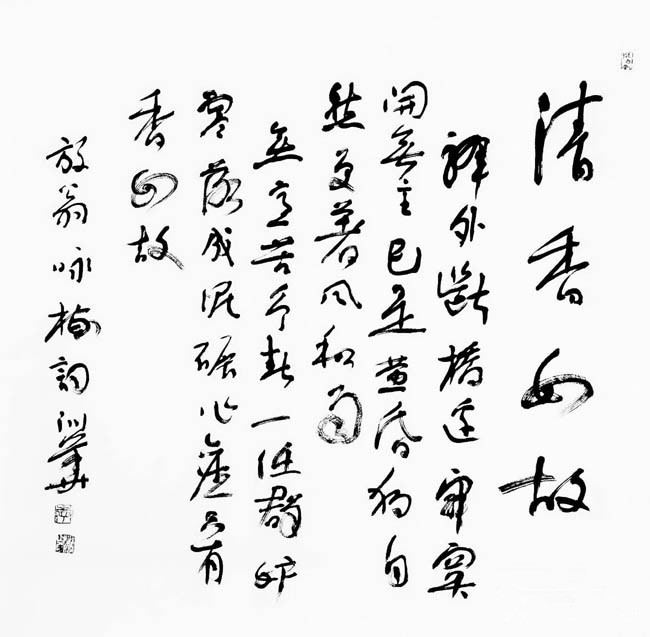 清香如故
驛外斷橋邊寂寞
開無主已是黄昏獨自
愁更著風和雨
無意苦爭春一任群妒
零落成泥碾作塵只有
香如故
放翁咏梅詞